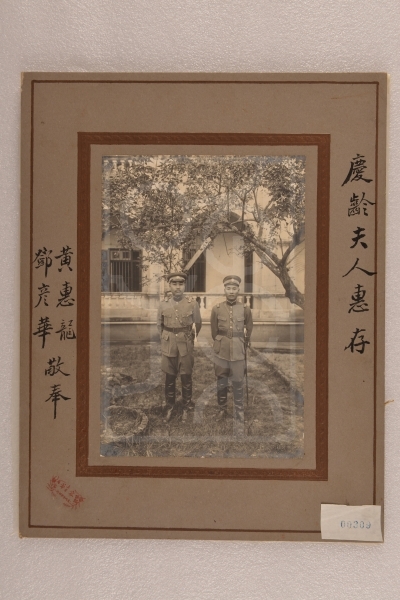 慶齡夫人惠存
黃惠龍
鄧彥華
敬奉